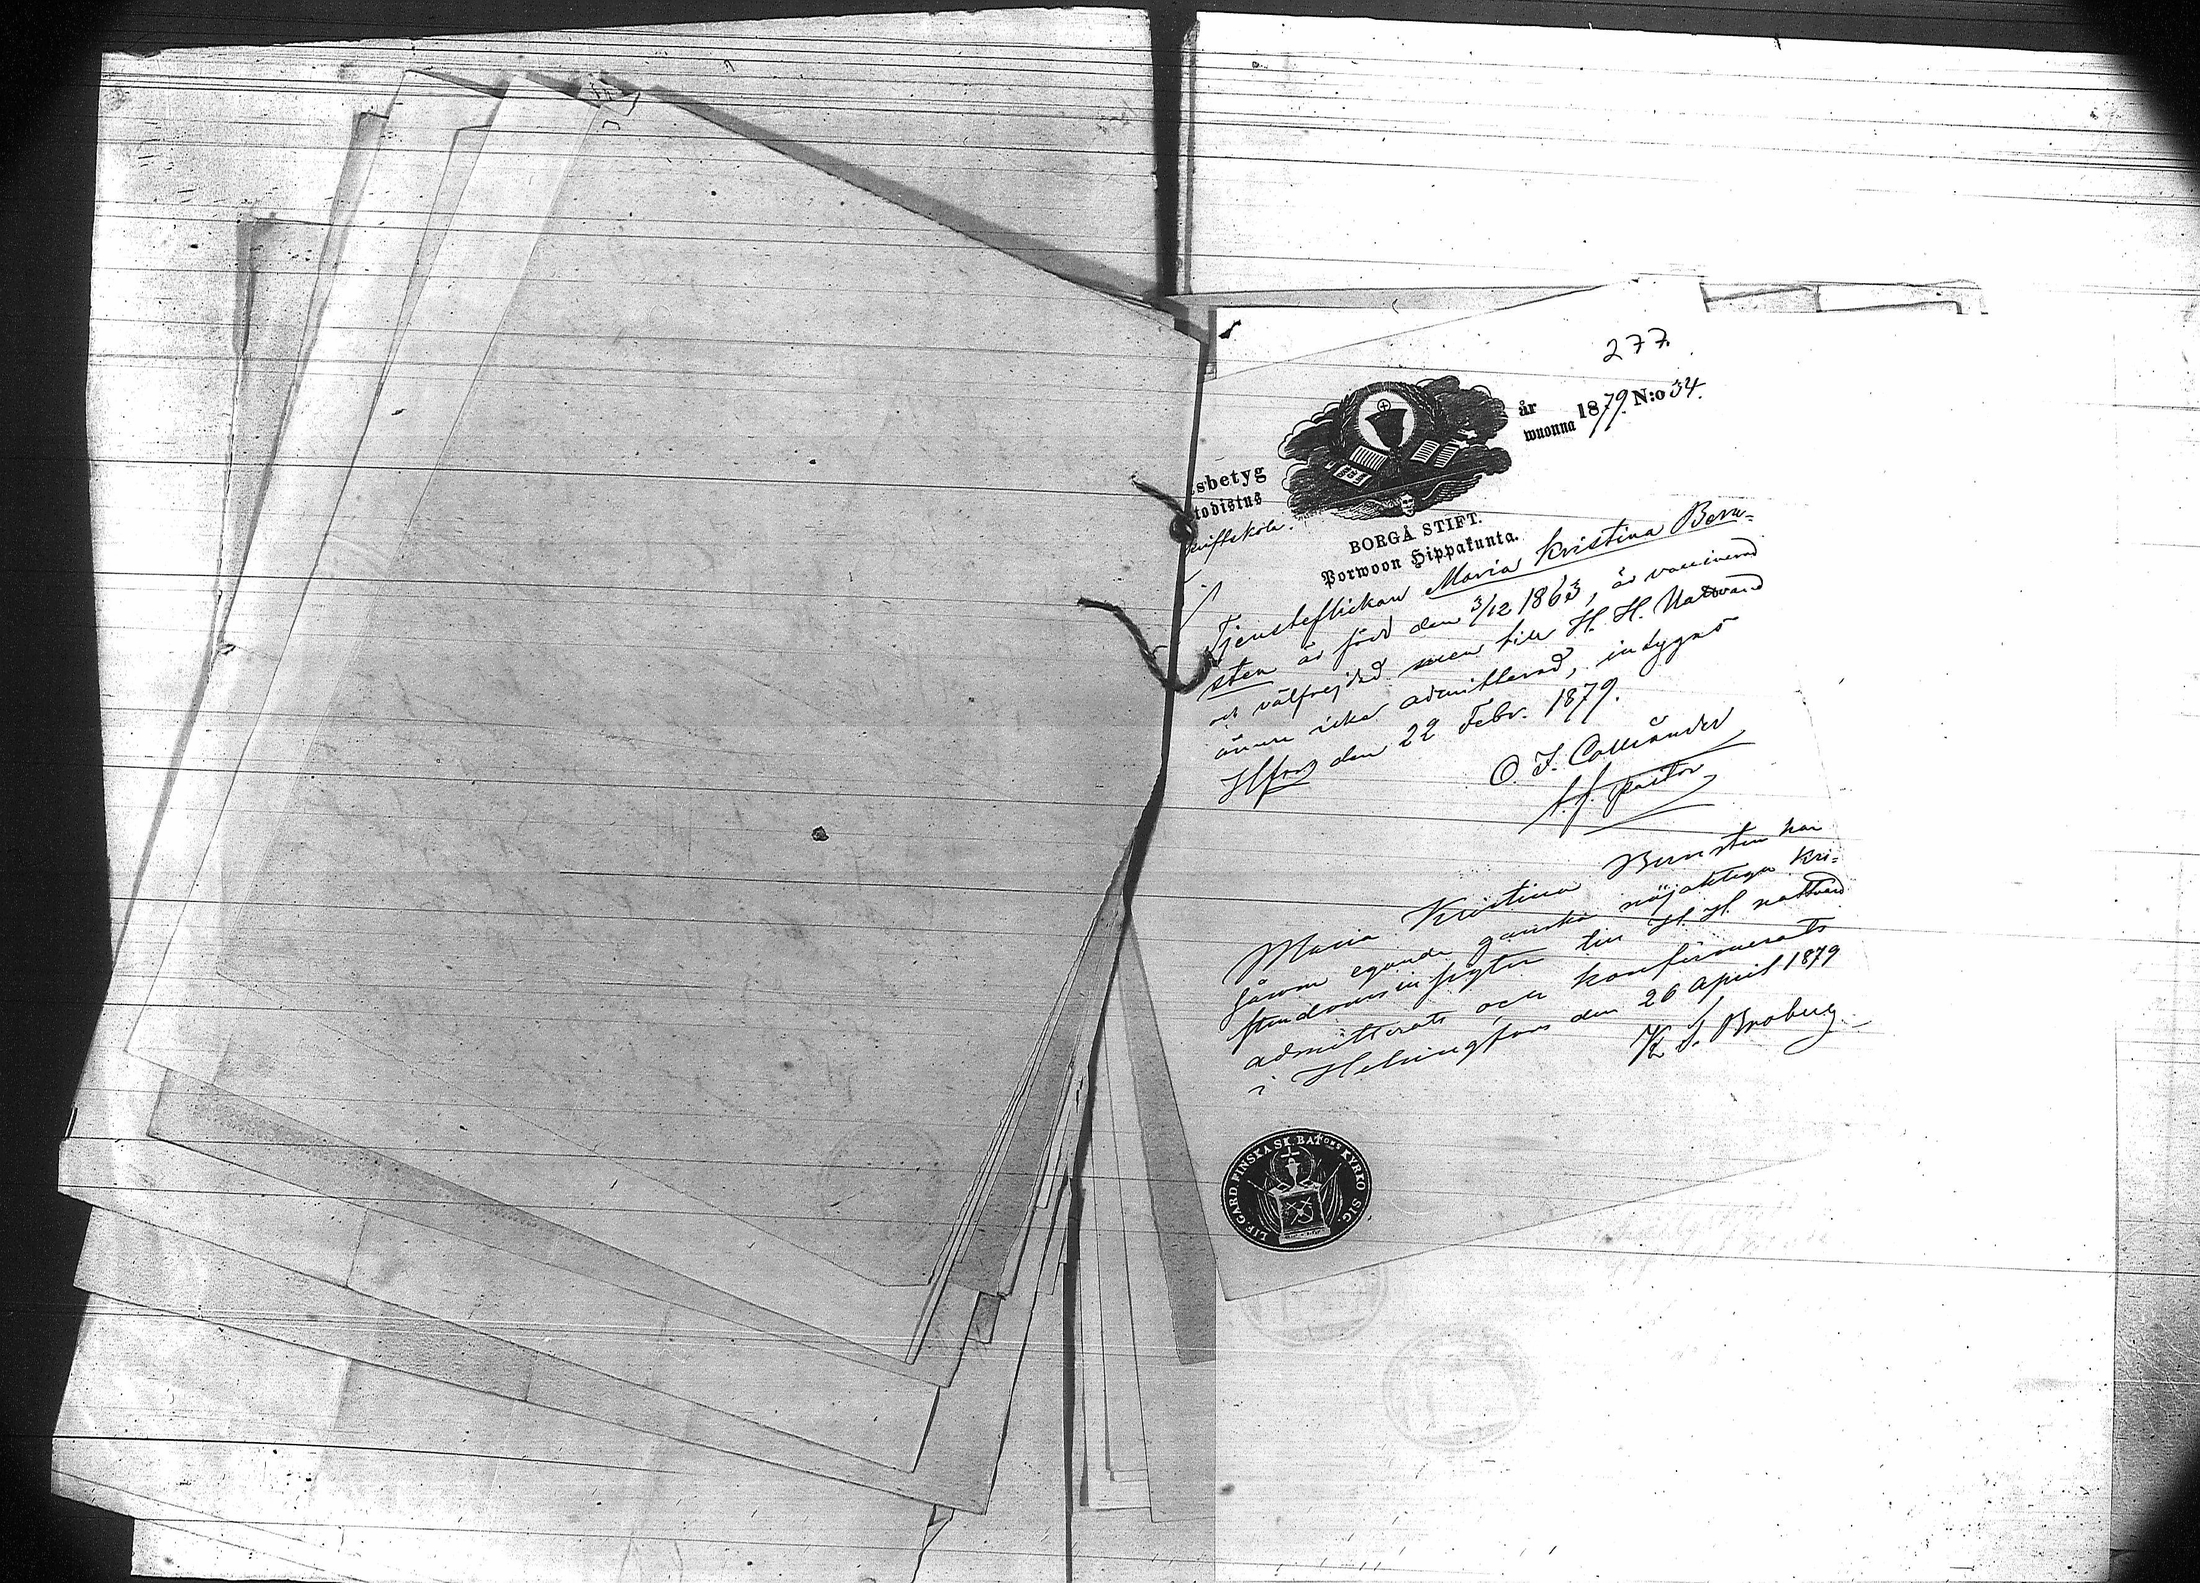 277.
år
wuonna 1879. N:o 34.
sbetyg
todistus
skriftskola.
BORGÅ STIFT.
Porwoon Hippakunta.
Tjensteflickan Maria Kristina Bern=
sten är född den 3/12 1863, är vaccinerad
och välfrejdad men till H. H. Nattvard
ännu icke admitterad, intygas
Hfors den 22 Febr. 1879.
O. I. Colliander
t. f. pastor
Maria Kristina Bernsten har
såsom egande ganska nöjaktiga kri=
stendomsinsigter till H. H. nattvard
admitterats och konfirmerats
i Helsingfors den 26 April 1879
K. S. Broberg
LIF. GARD. FINSKA SK. BATONS KYRKO SIG.